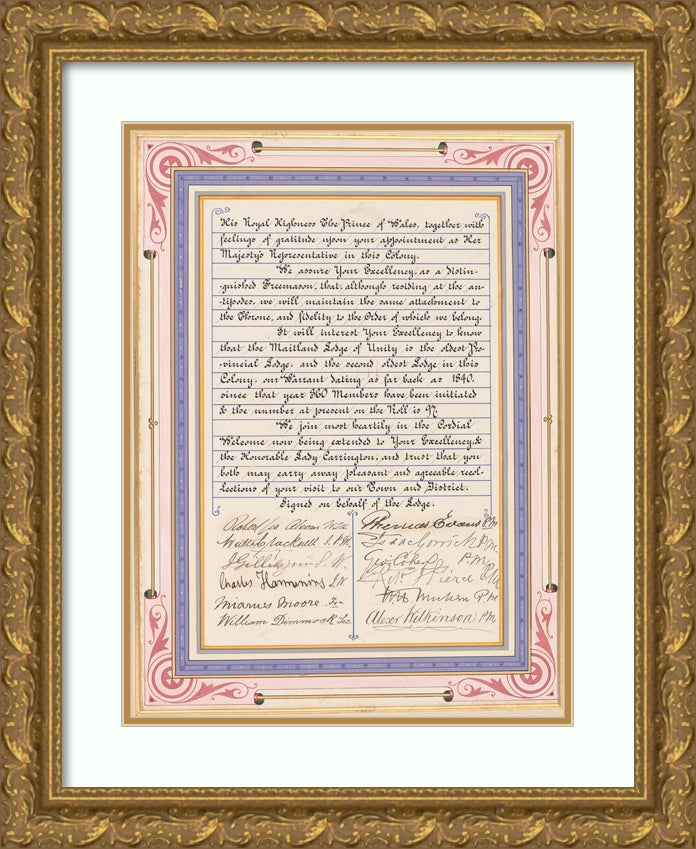 His Royal Highness The Prince of Wales, together with
feelings of gratitude upon your appointment as Her
Majesty's Representative in this Colony.
We assure Your Excellency, as a distin-
guished Freemason, that, although residing at the an-
tipodes, we will maintain the same attachment to
the Throne, and fidelity to the Order of which we belong.
It will interest Your Excellency to know
that the Maitland Lodge of Unity is the oldest Pro-
vincial Lodge, and the second oldest Lodge in this
Colony, our Warrant dating as far back as 1840.
since that year 360 Members have been initiated
& the number at present on the Roll is 97.
We join most heartily in the Cordial
Welcome now being extended to Your Excellency, &
the Honorable Lady Carrington, and trust that you
both may carry away pleasant and agreeable recol-
lections of your visit to our Town and District.
Signed on behalf of the Lodge.
Thomas Evans P.M.
P.M.
Geo. Cohen P.M.
Charles Hammming J.W.
Pierce P.M.
Moore
P.M.
William Dimmock Sec.
Alexr Wilkinson P.M.